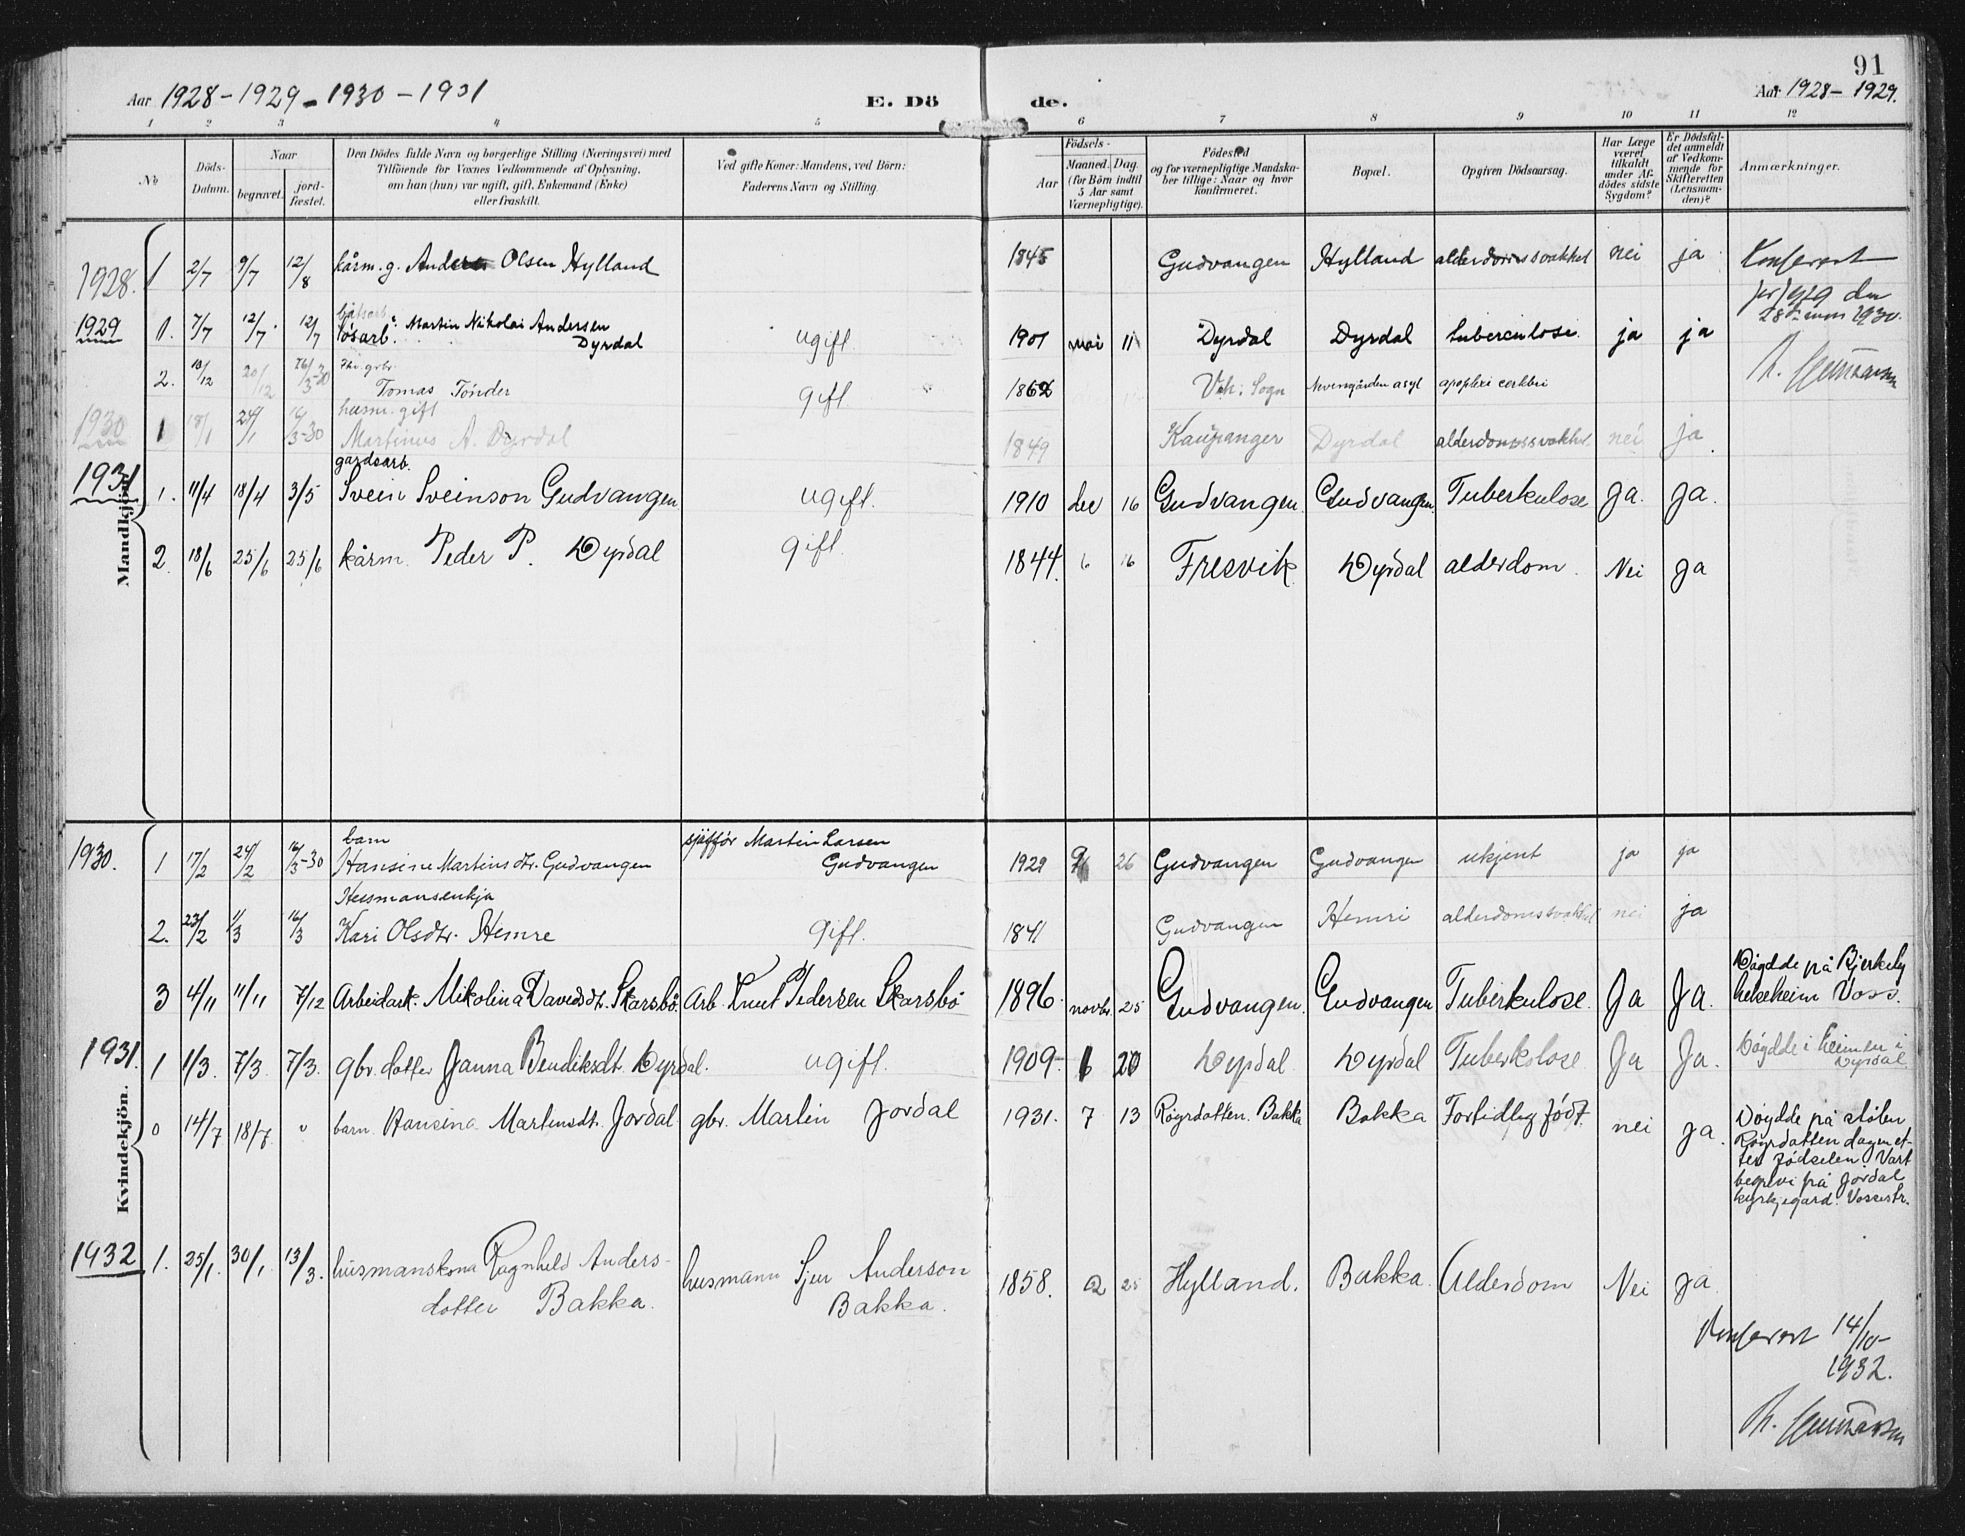 91
Aar 1928-1929-1930-1931 E. Dö de. Aar 1928-1929.
1 2 3 4 5 6 7 8 9 10 11 12
No
Döds-Datum.
Naar
begravet.
jord-fæstet.
Den Dödes fulde Navn og borgerlige Stilling (Næringsvei) med
Tilföiende for Voxnes Vedkommende af Oplysning,
om han (hun) var ugift, gift, Enkemand (Enke)
eller fraskilt.
Ved gifte Koner: Mandens, ved Börn:
Faderens Navn og Stilling.
Födsels-
Aar
Maaned. Dag.
(for Börn indtil
5 Aar samt
Værnepligtige).
Födested
og for værnepligtige Mandska-
ber tillige: Naar og hvor
konfirmeret.
Bopæl.
Opgiven Dödsaarsag.
Har Læge
været
tilkaldt
under Af-
dödes sidste
Sygdom?
Er Dödsfal-
det anmeldt
af Vedkom-
mende for
Skifteretten
(Lensman-
den)?
Anmærkninger.
Mandkjön.
1928. 1 2/7 9/7 12/8 kårm. g. Anders Olsen Hylland 1845 Gudvangen Hylland alderdomssvakhet nei ja Konferert
for 1929 den
28 1930.
1929 1. 7/7 12/7 12/7 løsarb. Martin Nikolai Andersen
Dyrdal ugift. 1901 mai 11 Dyrdal Dyrdal tuberculose. ja ja
2. 13/12 20/12 16/3-30
Tomas Tönder gift 1862 Vik i Sogn asyl apoplexi cerebri
1930 1 18/1 24/1 16/3-30 husm. gift
Martinus A. Dyrdal 1849 Kaupanger Dyrdal alderdomssvakhet nei ja.
1931 1. 11/4 18/4 3/5 gardsarb.
Svein Sveinson Gudvangen ugift. 1910 dec 16 Gudvangen. Gudvangen. Tuberkulose Ja. Ja.
2. 18/6 25/6 25/6 kårm. Peder P. Dyrdal gift. 1844. 6 16 Fresvik. Dyrdal alderdom. Nei Ja
Kvindekjön.
1930. 1 17/2 24/2 16/3-30 barn
Hansine Martinsdtr. Gudvangen sjåfför Martin Larsen
Gudvangen 1929 9 26 Gudvangen Gudvangen ukjent ja ja
2. 23/2 1/3 16/3 Husmansenkja
Kari Olsdtr. Hemre gift. 1841 Gudvangen Hemri alderdomssvakhet nei ja
3 4/11 11/11 7/12 Arbeidark. Mikolina Davidsdt. Skarsbö. Arb. Knut Pedersen Skarsbö 1896. novbr 25 Gudvangen. Gudvangen Tuberkulose. Ja Ja. Døydde på Bjerkely
helseheim Voss.
1931. 1 1/3. 7/3. 7/3. gbr. dotter Janna Bendiksdt. Dyrdal. ugift. 1909. 6 20 Dyrdal Dyrdal Tuberkulose Ja Ja. Døydde i heimen i
Dyrdal
0 14/7 18/7. " barn Hansina Martinsdt. Jordal gbr. Martin Jordal 1931. 7 13 Røyrdotten. Bakka Bakka Fortidleg födt. nei ja. Døydde på stølen
Røyrdotten dagen et-
ter födselen. Vart
begrevi på Jordal
kyrkjegard. Vossestr.
1932 1. 25/1. 30/1. 13/3. husmanskona Ragnhild Anders-
dotter Bakka. husmann Sjur Anderson
Bakka. 1858. 2 25 Hylland. Bakka. Alderdom Nei Ja
Konferert 14/10-
1932.